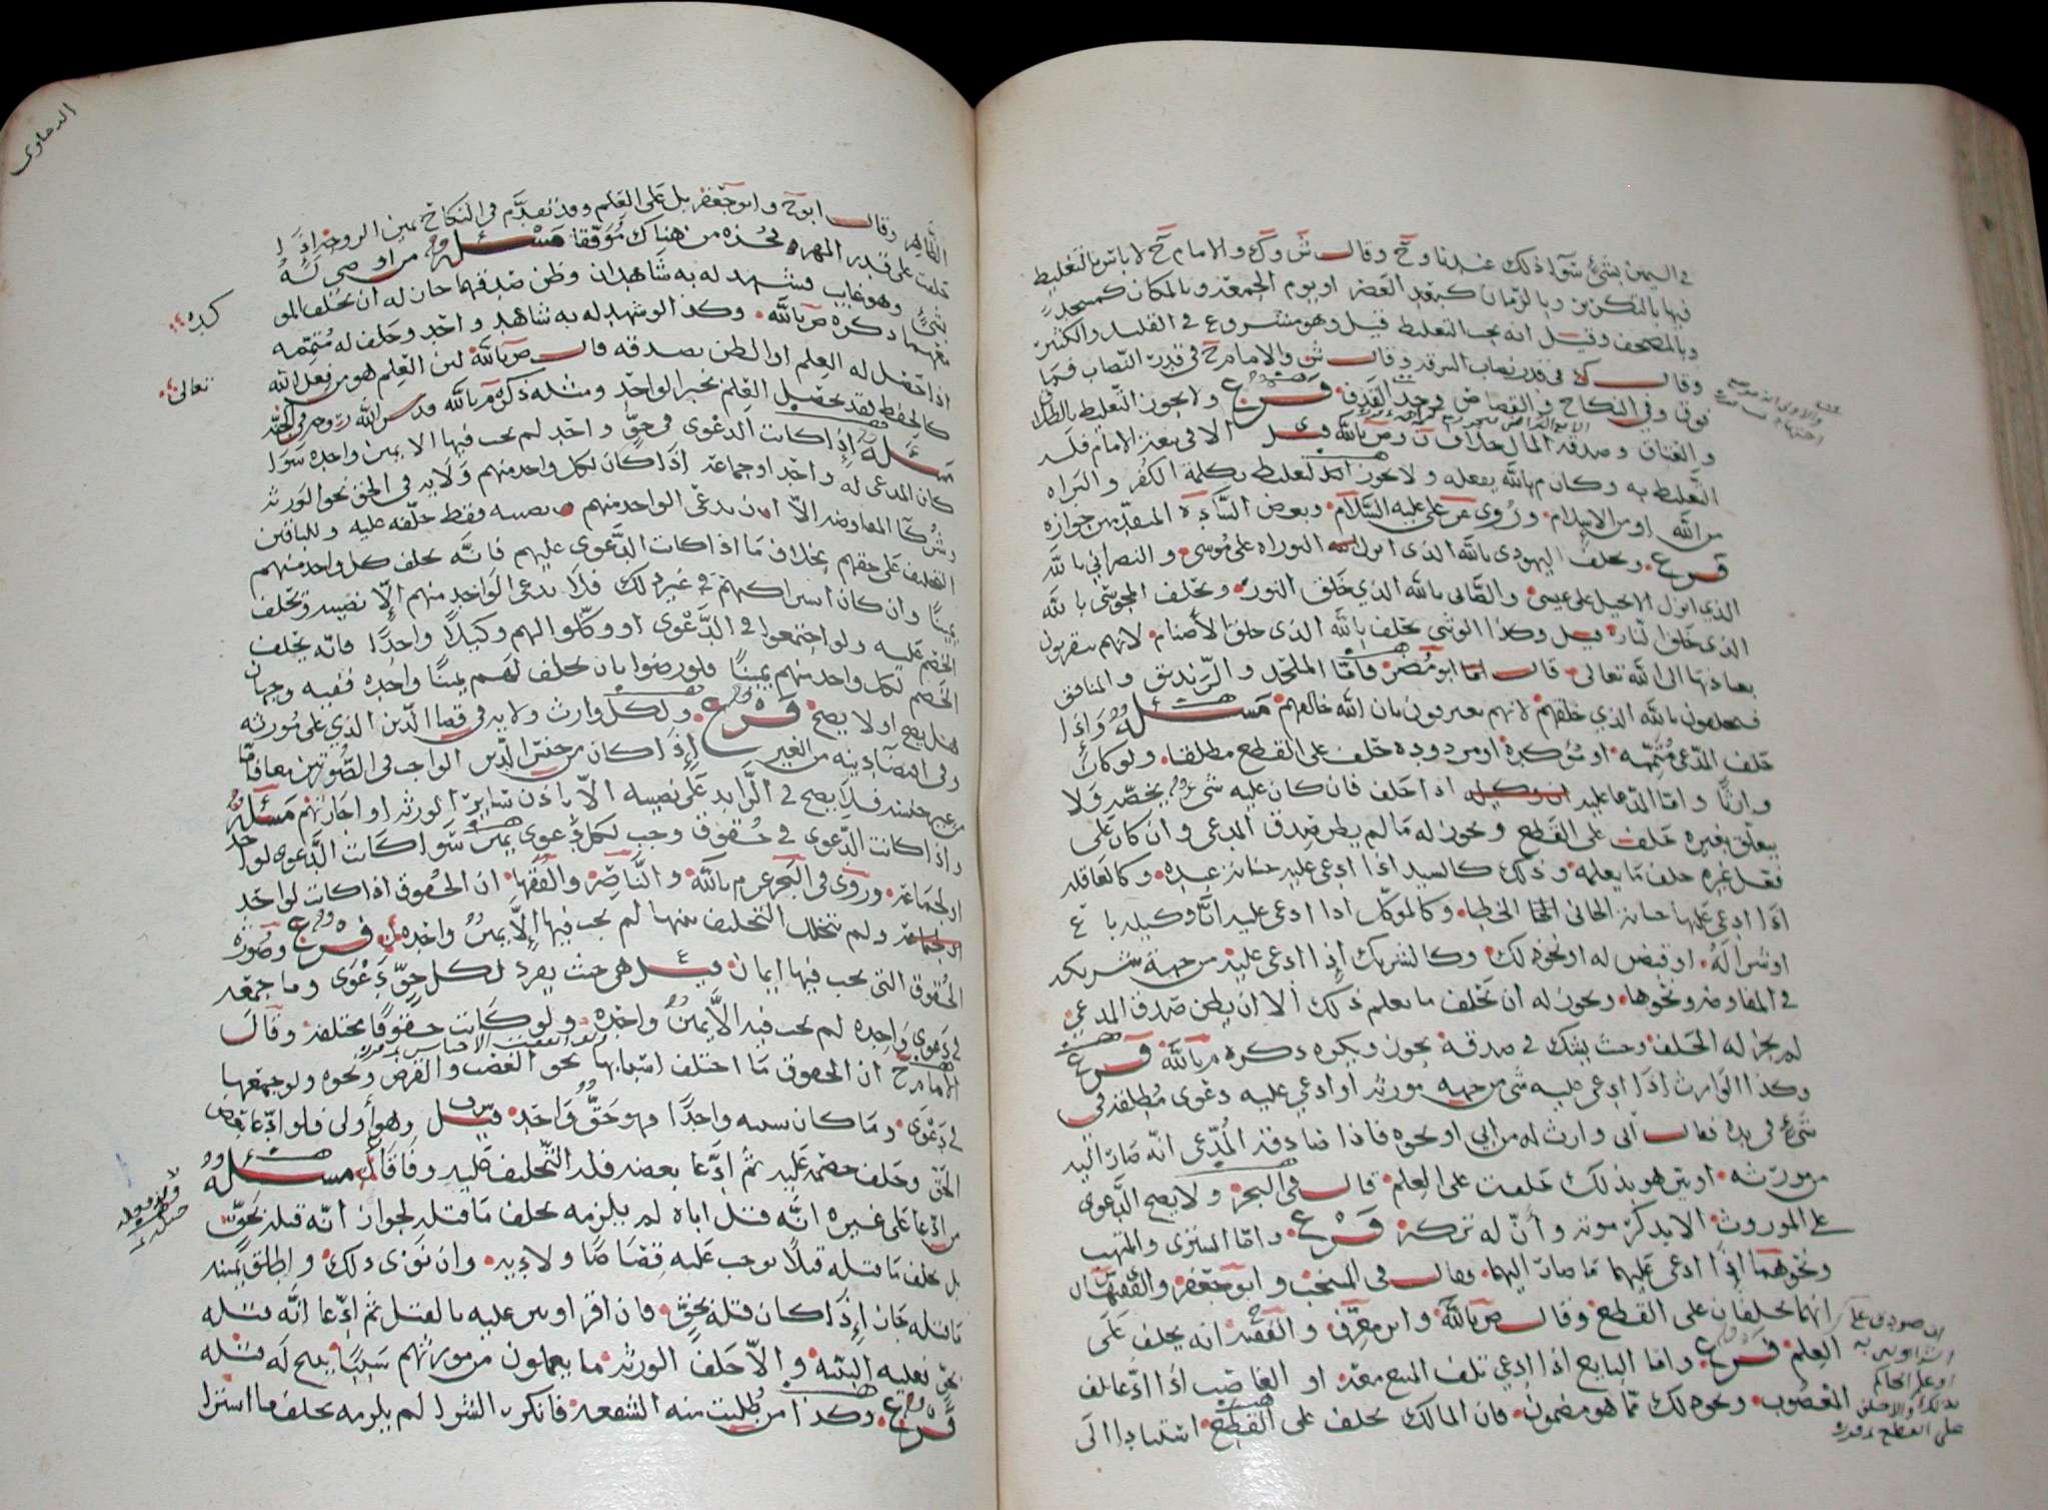 في اليمين بشيء سواء ذلك عندنا وح وقال ش وك والامام ح لا باس بالتغليظ
فيها بالتكرير وبالزمان كبعد العصر او يوم الجمعة وبالمكان كمسجد
وبالمصحف وقيل انه يجب التغليظ قيل وهو مشروع في القليل والكثير
وقال ك في قدر نصاب السرقة وقال ش والامام ح في قدر النصاب فما
فوق وفي النكاح والقصاص وحد القذف فرع ولا يجوز التغليظ بالطلاق
والعتاق وصدقة المال خلاف ن وص بالله قيل الا في بعد الامام فله
التغليظ به وكان م بالله يفعله ولا يجوز التغليظ بكلمة الكفر والبراه
من الله او من الاسلام وروي عن علي عليه السلام وبعض السادة المتقدمين جوازه
فرع ويحلف اليهودي بالله الذي انزل التوراه على موسى والنصراني بالله
الذي انزل الانجيل على عيسى والصابي بالله الذي خلق النور ويحلف المجوسي بالله
الذي خلق النار قيل وكذا الوثني يحلف بالله الذي خلق الأصنام لانهم يتقربون
بعبادتها الى الله تعالى قال ابو مضر فاما الملحد والزنديق والمنافق
فيحلفون بالله الذي خلقهم لانهم يعترفون بان الله خالقهم مسئلة واذا
حلف المدعي متممه او مؤكدة او مردوده حلف على القطع مطلقا ولو كان
وارثا واما المدعا عليه اذا حلف فان كان عليه شيء يخصه ولا
يتعلق بغيره حلف على القطع ويجوز له ما لم يظن صدق المدعي وان كان على
فعل غيره حلف ما يعلمه وذلك كالسيد اذا ادعي عليه جناية عبده وكالعاقله
اذا ادعي عليها جناية الجاني الخطا وكالموكل اذا ادعي عليه ان وكيله باع
او شرا له او قبض له او نحو ذلك وكالشريك اذا ادعي عليه من جهة شريكه
في المفاوضه ونحوها ويجوز له ان يحلف ما يعلم ذلك الا ان يظن صدق المدعي
لم يجز له الحلف وحيث يشك في صدقه يجوز ويكره ذكره م بالله فرع
وكذا الوارث اذا ادعي عليه شي من جهة مورثه او ادعي عليه دعوى مطلقة في
شيء في يده فقال اني وارث له من ابي او نحوه فاذا صادقه المدعي انه صار اليه
من مورثه او بين هو بذلك حلف على العلم قال في البحر ولا يصح الدعوى
على الموروث الا بذكر موته وأن له تركة فرع واما المشتري والمتهب
ونحوهما اذا ادعي عليهما ما صار اليهما فقال في المنتخب وابو جعفر والفقيهان
انهما يحلفان على القطع وقال ص بالله وابن معرف والفقيه ح انه يحلف على
العلم فرع واما البايع اذا ادعي تلف المبيع معه او الغاصب اذا ادعا تلف
المغصوب ونحو ذلك مما هو مضمون فان المالك يحلف على القطع استنادا الى
ان صودق على
الشرا وبين به
او علم الحاكم
بذلك والا حلف
على القطع
الدماوى
الظاهر وقال ابو ح وابو جعفر بل على العلم وقد تقدم في النكاح يمين الزوجة اذا
حلفت على قدر المهر فخذه من هناك موفقا مسئلة من اوصي له
بشيء وهو غايب فشهد له به شاهدان وظن صدقهما جاز له ان يحلف المو
معهما ذكره ص بالله وكذا لو شهد له به شاهد واحد وحلف له متممه
اذا حصل له العلم او الظن بصدقه قال ص بالله لان العلم هو من فعل الله
كالحفظ فقد يحصل العلم بخبر الواحد ومثله ذكره م بالله
مسئلة اذا كانت الدعوى في حق واحد لم يجب فيها الا يمين واحده سوا
كان المدعى له واحد او جماعة اذا كان لكل واحد منهم ولاية في الحق نحو الورثة
وشركا المفاوضه الا ان يدعي الواحد منهم نصيبه فقط حلفه عليه وللباقين
التحليف على حقهم بخلاف ما اذا كانت الدعوى عليهم فانه يحلف كل واحد منهم
يمينا وان كان اشتراكهم في غير ذلك فلا يدعي الواحد منهم الا نصيبه ويحلف
الخصم عليه ولو اجتمعوا في الدعوى او وكلوا الهم وكيلا واحدا فانه يحلف
الخصم لكل واحد منهم يمينا فلو رضوا بان يحلف لهم يمينا واحده ففيه وجهان
هل يصح او لا يصح فرع ولكل وارث ولاية في قضا الدين الذي على مورثه
وفي اقتضا دينه من الغير اذا كان من جنس الدين الواجب في الصورتين معا فاما
من غير جنسه فلا يصح في الزايد على نصيبه الا باذن ساير الورثه او اجازتهم مسئلة
واذا كانت الدعوى في حقوق وجب لكل دعوى يمين سوا كانت الدعوى لواحد
او لجماعة وروى في البحر عن م بالله والناصر والفقها ان الحقوق اذا كانت لواحد
ولم يتخلل التحليف بينها لم يجب فيها الا يمين واحده فرع وصورة
الحقوق التي يجب فيها ايمان قيل هي حيث يفرد لكل حق دعوى وما جمعه
في دعوى واحده لم يجب فيه الا يمين واحده ولو كانت حقوقا مختلفة وقال
الامام ح ان الحقوق ما اختلف اسبابها نحو الغصب والقرض ونحوه ولو جمعها
في دعوى وما كان سببه واحدا فهو حق واحد قيل س وهو أولى فلو ادعا بعض
الحق وحلف خصمه عليه ثم ادعا بعضه فله التحليف عليه وفاقا مسئلة
من ادعا على غيره انه قتل اباه لم يلزمه يحلف ما قتله لجواز انه قتله بحق
بل يحلف ما قتله قتلا يوجب عليه قصاصا ولا دية وان نوى ذلك واطلق يمينه
ما قتله جاز اذا كان قتله بحق فان اقر او بين عليه بالقتل ثم ادعا انه قتله
بحق فعليه البينة والا حلف الورثة ما يعلمون من مورثهم سببا يبيح له قتله
فرع وكذا من طلبت منه الشفعة فانكر الشرا لم يلزمه يحلف ما اشترا
تعالى